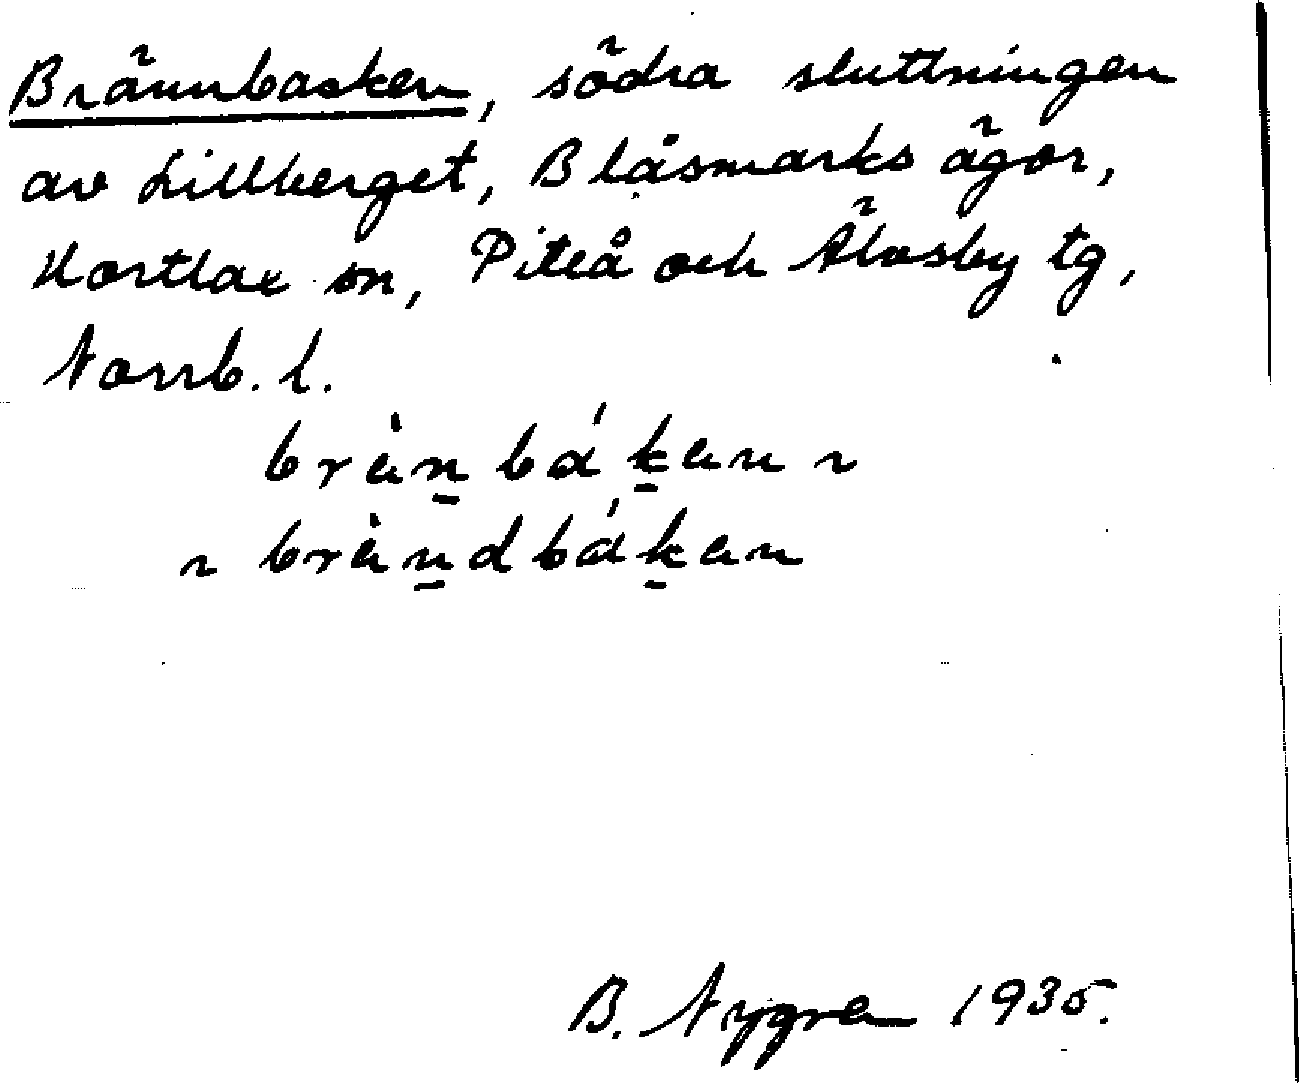 Brännbacken, södra sluttningen
av Lillberget, Blåsmarks ägor,
Hortlax sn, Piteå och Älvsby tg,
Norrb. l.
brän̲bák̲en ~
~ brän̲dbák̲en
B. Nygren 1935.